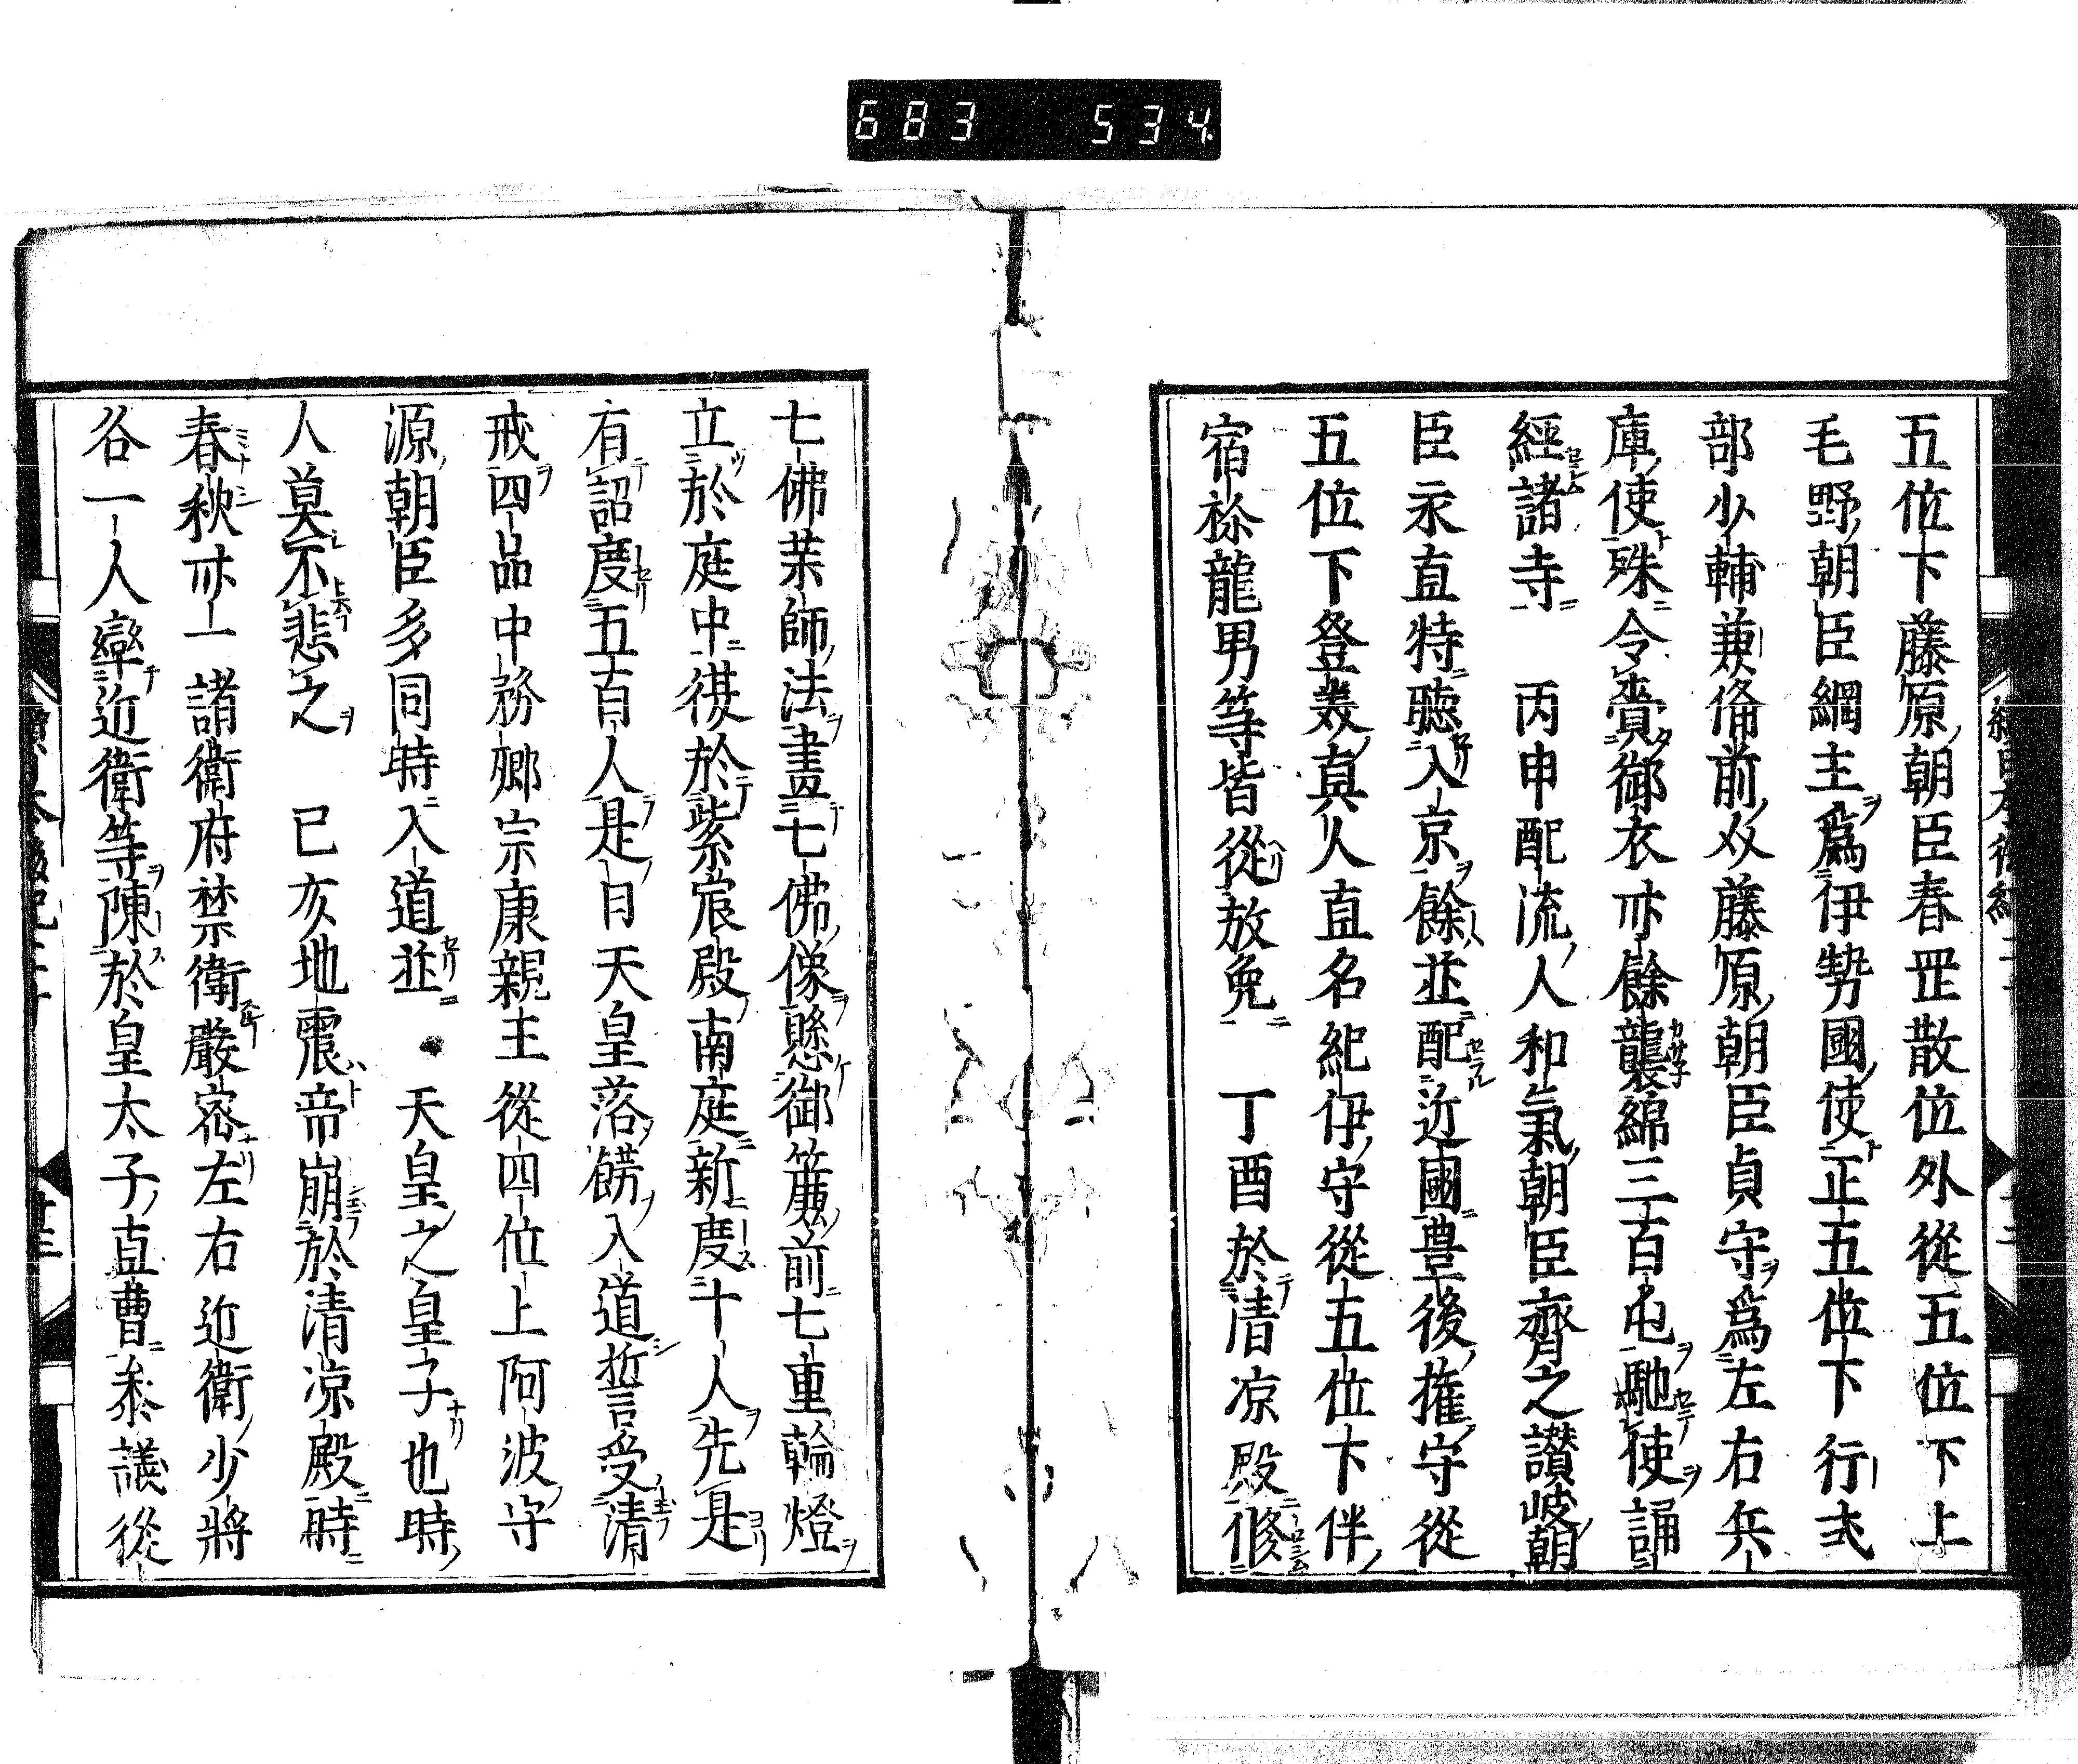 683 534
五位下藤原朝臣春罡散位外從五位下上
毛野朝臣綱主爲伊勢國使正五位下行式
部少輔兼俻前𠆢藤原朝臣貞守爲左右兵
庫使殊令賫御衣亦餘襲綿三百屯馳使誦
經諸寺 丙申配流人和氣朝臣齊之讃岐朝
臣永直特聴入京餘並配近國豊後權守從
五位下登美真人直名紀伊守從五位下伴
宿祢龍男等皆從放免 丁酉於清凉殿修
七佛藥師法畫七佛像懸御簾前七重輪燈
立於庭中從於紫宸殿南庭新度十人先是
有詔度五百人是日天皇落餝入道誓受清
戒四品中務卿宗康親王從四位上阿波守
源朝臣多同時入道並天皇之皇子也時
人莫不悲之 已亥地震帝崩於清凉殿時
春秋卌一諸衛府禁衛嚴宻左右近衛少將
各一人率近衛等陳於皇太子直曹叅議從